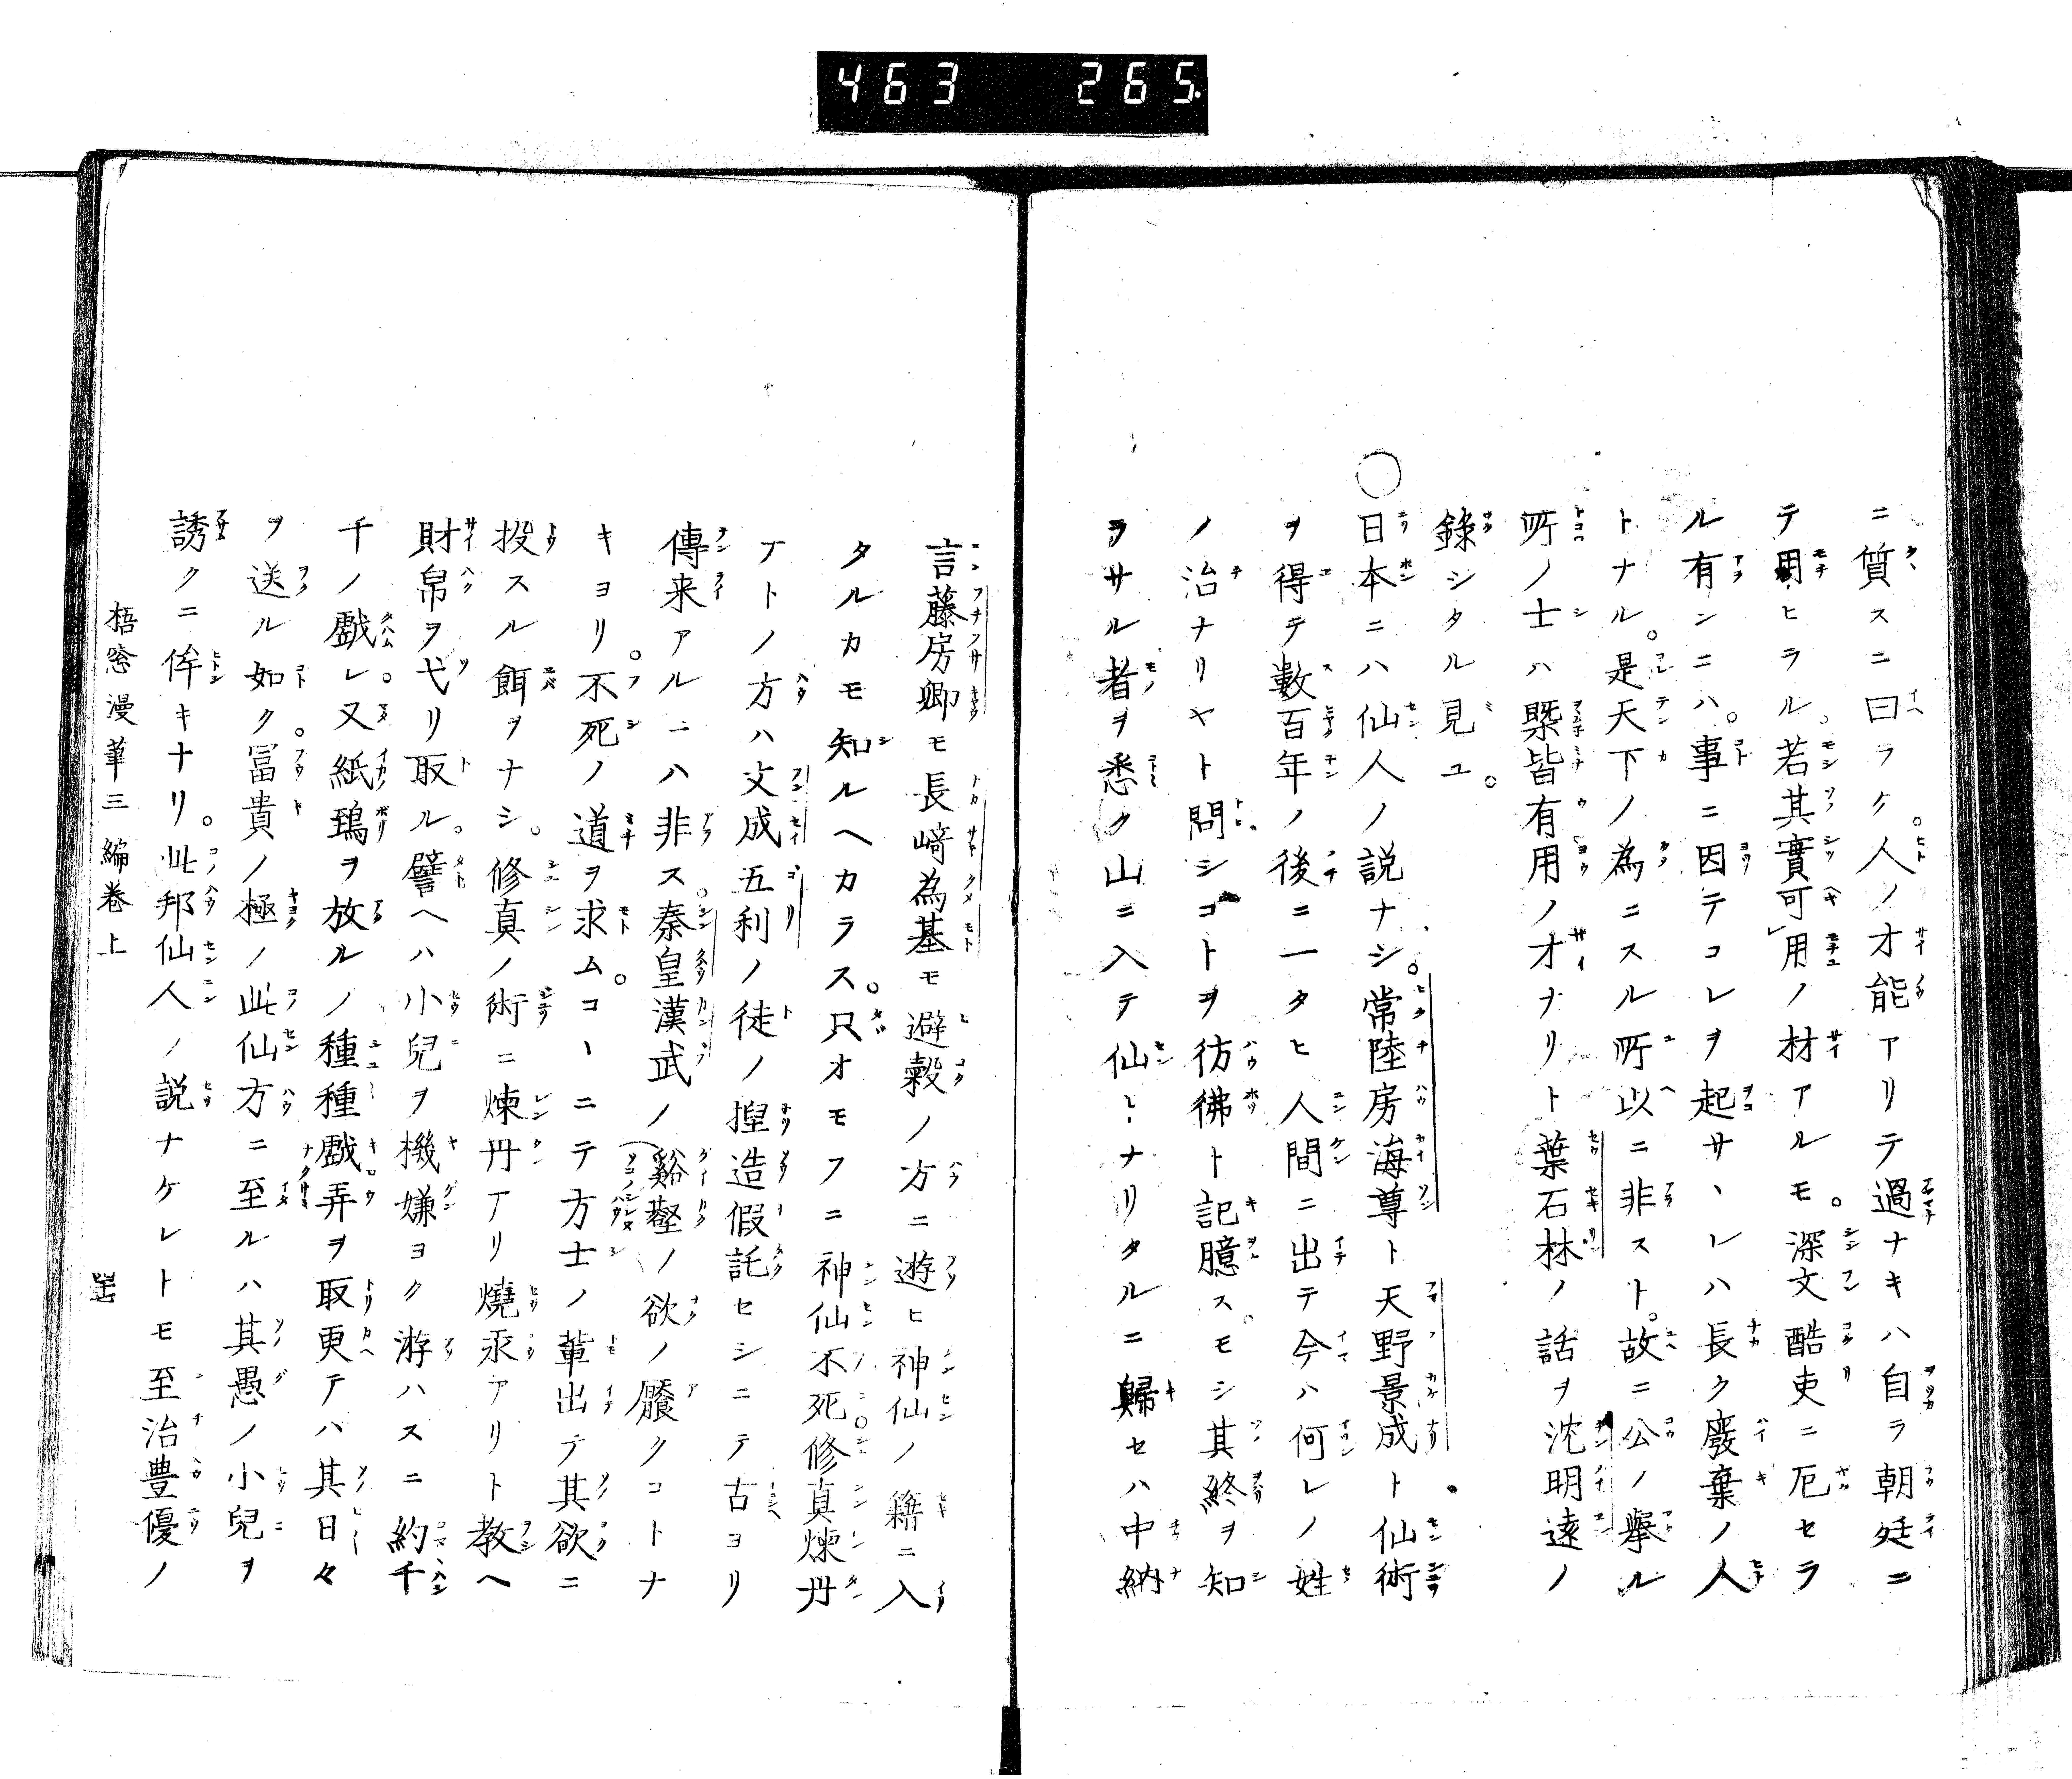 463 265
ニ質スニ曰ラク人ノ才能アリテ過ナキハ自ラ朝廷ニ
テ用ヒラル。若其實可用ノ材アルモ。深文酷吏ニ厄セラ
ル有ンニハ。事ニ因テコレヲ起サヽレハ長ク廢棄ノ人
トナル。是天下ノ為ニスル所以ニ非スト。故ニ公ノ擧ル
所ノ士ハ槩皆有用ノ才ナリト葉石林ノ話ヲ沈明遠ノ
錄シタル見ユ。
○日本ニハ仙人ノ説ナシ。常陸房海尊ト天野景成ト仙術
ヲ得テ數百年ノ後ニ一タヒ人間ニ出テ今ハ何レノ姓
ノ治ナリヤト問シコトヲ彷彿ト記臆ス。モシ其終ヲ知
ラサル者ヲ悉ク山ニ入テ仙〻ナリタルニ歸セハ中納
言藤房卿モ長﨑為基モ避穀ノ方ニ遊ヒ神仙ノ籍ニ入
タルカモ知ルヘカラス。只オモフニ神仙不死。修真煉丹
ナトノ方ハ文成五利ノ徒ノ揑造假託セシニテ古ヨリ
傳来アルニハ非ス。秦皇漢武ノ谿壑ノ欲ノ饜クコトナ
キヨリ。不死ノ道ヲ求ム。コヽニテ方士ノ輩出デ其欲ニ
投スル餌ヲナシ。修真ノ術ニ煉丹アリ燒汞アリト教へ
財帛ヲ弋リ取ル。譬ヘハ小兒ヲ機嫌ヨク游ハスニ約千
千ノ戲レ又紙鵄ヲ放ルノ種種戲弄ヲ取更テハ其日々
ヲ送ル如ク。冨貴ノ極ノ此仙方ニ至ルハ其愚ノ小兒ヲ
誘クニ侔キナリ。此邦仙人ノ説ナケレトモ至治豊優ノ
梧窓漫筆三編卷上